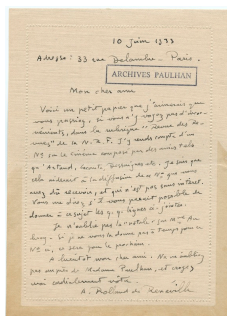 10 juin 1933
Adresse : 33 rue Delambre - Paris.
ARCHIVES PAULHAN
Mon cher ami
Voici un petit papier que j'aimerais que
vous passiez, si vous n'y voyez pas d'incon-
vénients, dans la rubrique "Revue des Re-
vues" de la N.R.F. J'y rends compte d'un
N° sur le Cinéma composé par des amis tels
qu'Artaud, etc. Je sais que
cela aiderait à la diffusion de ce N° que vous
avez dû recevoir, et qui n'est pas sans intérêt.
Vous me direz s'il vous paraît possible de
donner à ce sujet les q.q. lignes ci-jointes.
Je n'oublie pas la "note" sur M
- Si je ne vous la donne pas à temps pour ce
N° ci, ce sera pour le prochain.
A bientôt mon cher ami. Ne m'oubliez
pas auprès de Madame Paulhan, et croyez
moi cordialement vôtre.
A. Rolland de Renéville